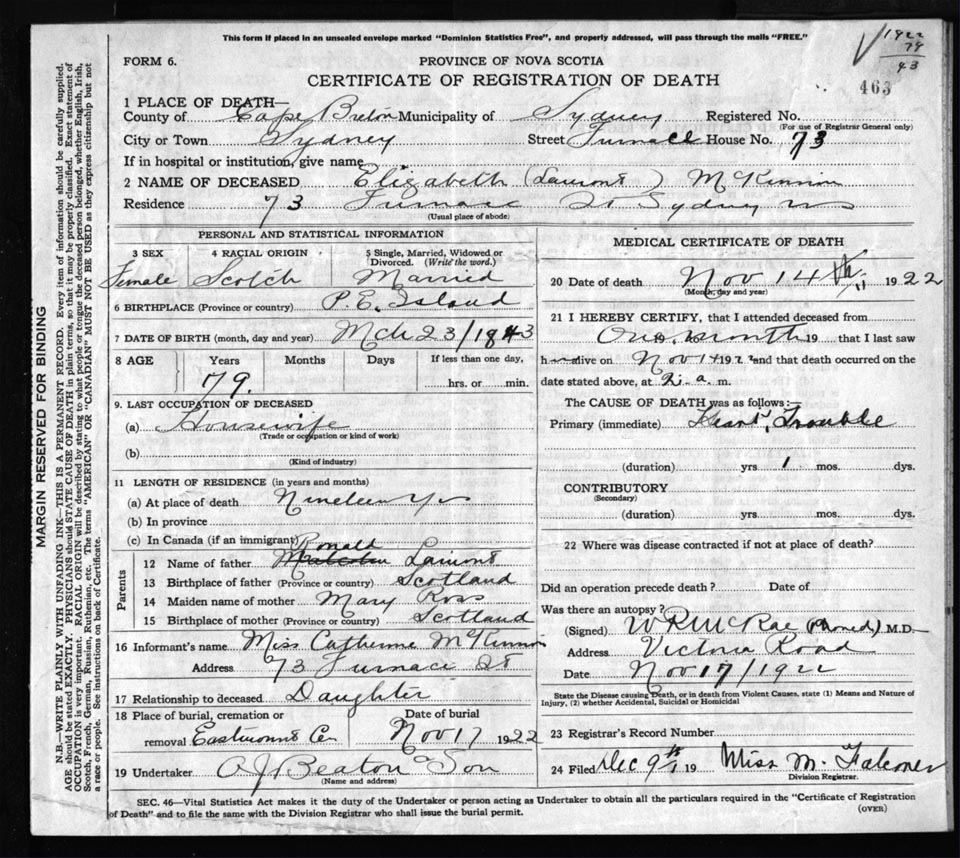 This form if placed in an unsealed envelope marked "Dominion Statistics Free", and properly addressed, will pass through the mails "FREE."
1922
79
43
FORM 6.
PROVINCE OF NOVA SCOTIA
CERTIFICATE OF REGISTRATION OF DEATH
463
1 PLACE OF DEATH—
County of Cape Breton Municipality of Sydney Registered No.
(For use of Registrar General only)
City or Town Sydney Street Furnace House No. 73
If in hospital or institution, give name
2 NAME OF DECEASED Elizabeth (Lamont) McKinnon
Residence 73 Furnace St Sydney NS
(Usual place of abode)
PERSONAL AND STATISTICAL INFORMATION
3 SEX 4 RACIAL ORIGIN 5 Single, Married, Widowed or Divorced. (Write the word.)
Female Scotch Married
6 BIRTHPLACE (Province or country) P.E. Island
7 DATE OF BIRTH (month, day and year) Mch 23/1843
8 AGE Years Months Days If less than one day,
79. hrs. or min.
9. LAST OCCUPATION OF DECEASED
(a) Housewife
(Trade or occupation or kind of work)
(b)
(Kind of industry)
11 LENGTH OF RESIDENCE (in years and months)
(a) At place of death Nineteen Yrs
(b) In province
(c) In Canada (if an immigrant)
Parents
Ronald
12 Name of father Malcolm Lamont
13 Birthplace of father (Province or country) Scotland
14 Maiden name of mother Mary Ross
15 Birthplace of mother (Province or country) Scotland
16 Informant's name Miss Catherine McKinnon
Address 73 Furnace St
17 Relationship to deceased Daughter
18 Place of burial, cremation or Date of burial
removal Eastmount Cem Nov 17 1922
19 Undertaker A.J. Beaton & Son
(Name and address)
MEDICAL CERTIFICATE OF DEATH
20 Date of death Nov 14th 1922
(Month, day and year)
21 I HEREBY CERTIFY, that I attended deceased from
One month 19 that I last saw
h alive on Nov 14 1922 and that death occurred on the
date stated above, at a. m.
The CAUSE OF DEATH was as follows:—
Primary (immediate) Heart Trouble
(duration) yrs 1 mos. dys.
CONTRIBUTORY
(Secondary)
(duration) yrs. mos. dys.
22 Where was disease contracted if not at place of death?
Did an operation precede death? Date of
Was there an autopsy?
(Signed) W R McRae (Phoned) M.D.
Address Victoria Road
Date Nov 17/1922
State the Disease causing Death, or in death from Violent Causes, state (1) Means and Nature of
Injury, (2) whether Accidental, Suicidal or Homicidal
23 Registrar's Record Number
24 Filed Dec 9th 19 Miss M. Falconer
Division Registrar.
SEC. 46—Vital Statistics Act makes it the duty of the Undertaker or person acting as Undertaker to obtain all the particulars required in the "Certificate of Registration
of Death" and to file the same with the Division Registrar who shall issue the burial permit.
(OVER)
MARGIN RESERVED FOR BINDING
N.B.—WRITE PLAINLY WITH UNFADING INK—THIS IS A PERMANENT RECORD. Every item of information should be carefully supplied.
AGE should be stated EXACTLY. PHYSICIANS should STATE CAUSE OF DEATH in plain terms, so that it may be properly classified. Exact statement of
OCCUPATION is very important. RACIAL ORIGIN will be described by stating to what people or tongue the deceased person belonged, whether English, Irish,
Scotch, French, German, Russian, Ruthenian, etc. The terms "AMERICAN" or "CANADIAN" MUST NOT BE USED as they express citizenship but not
a race or people. See instructions on back of Certificate.